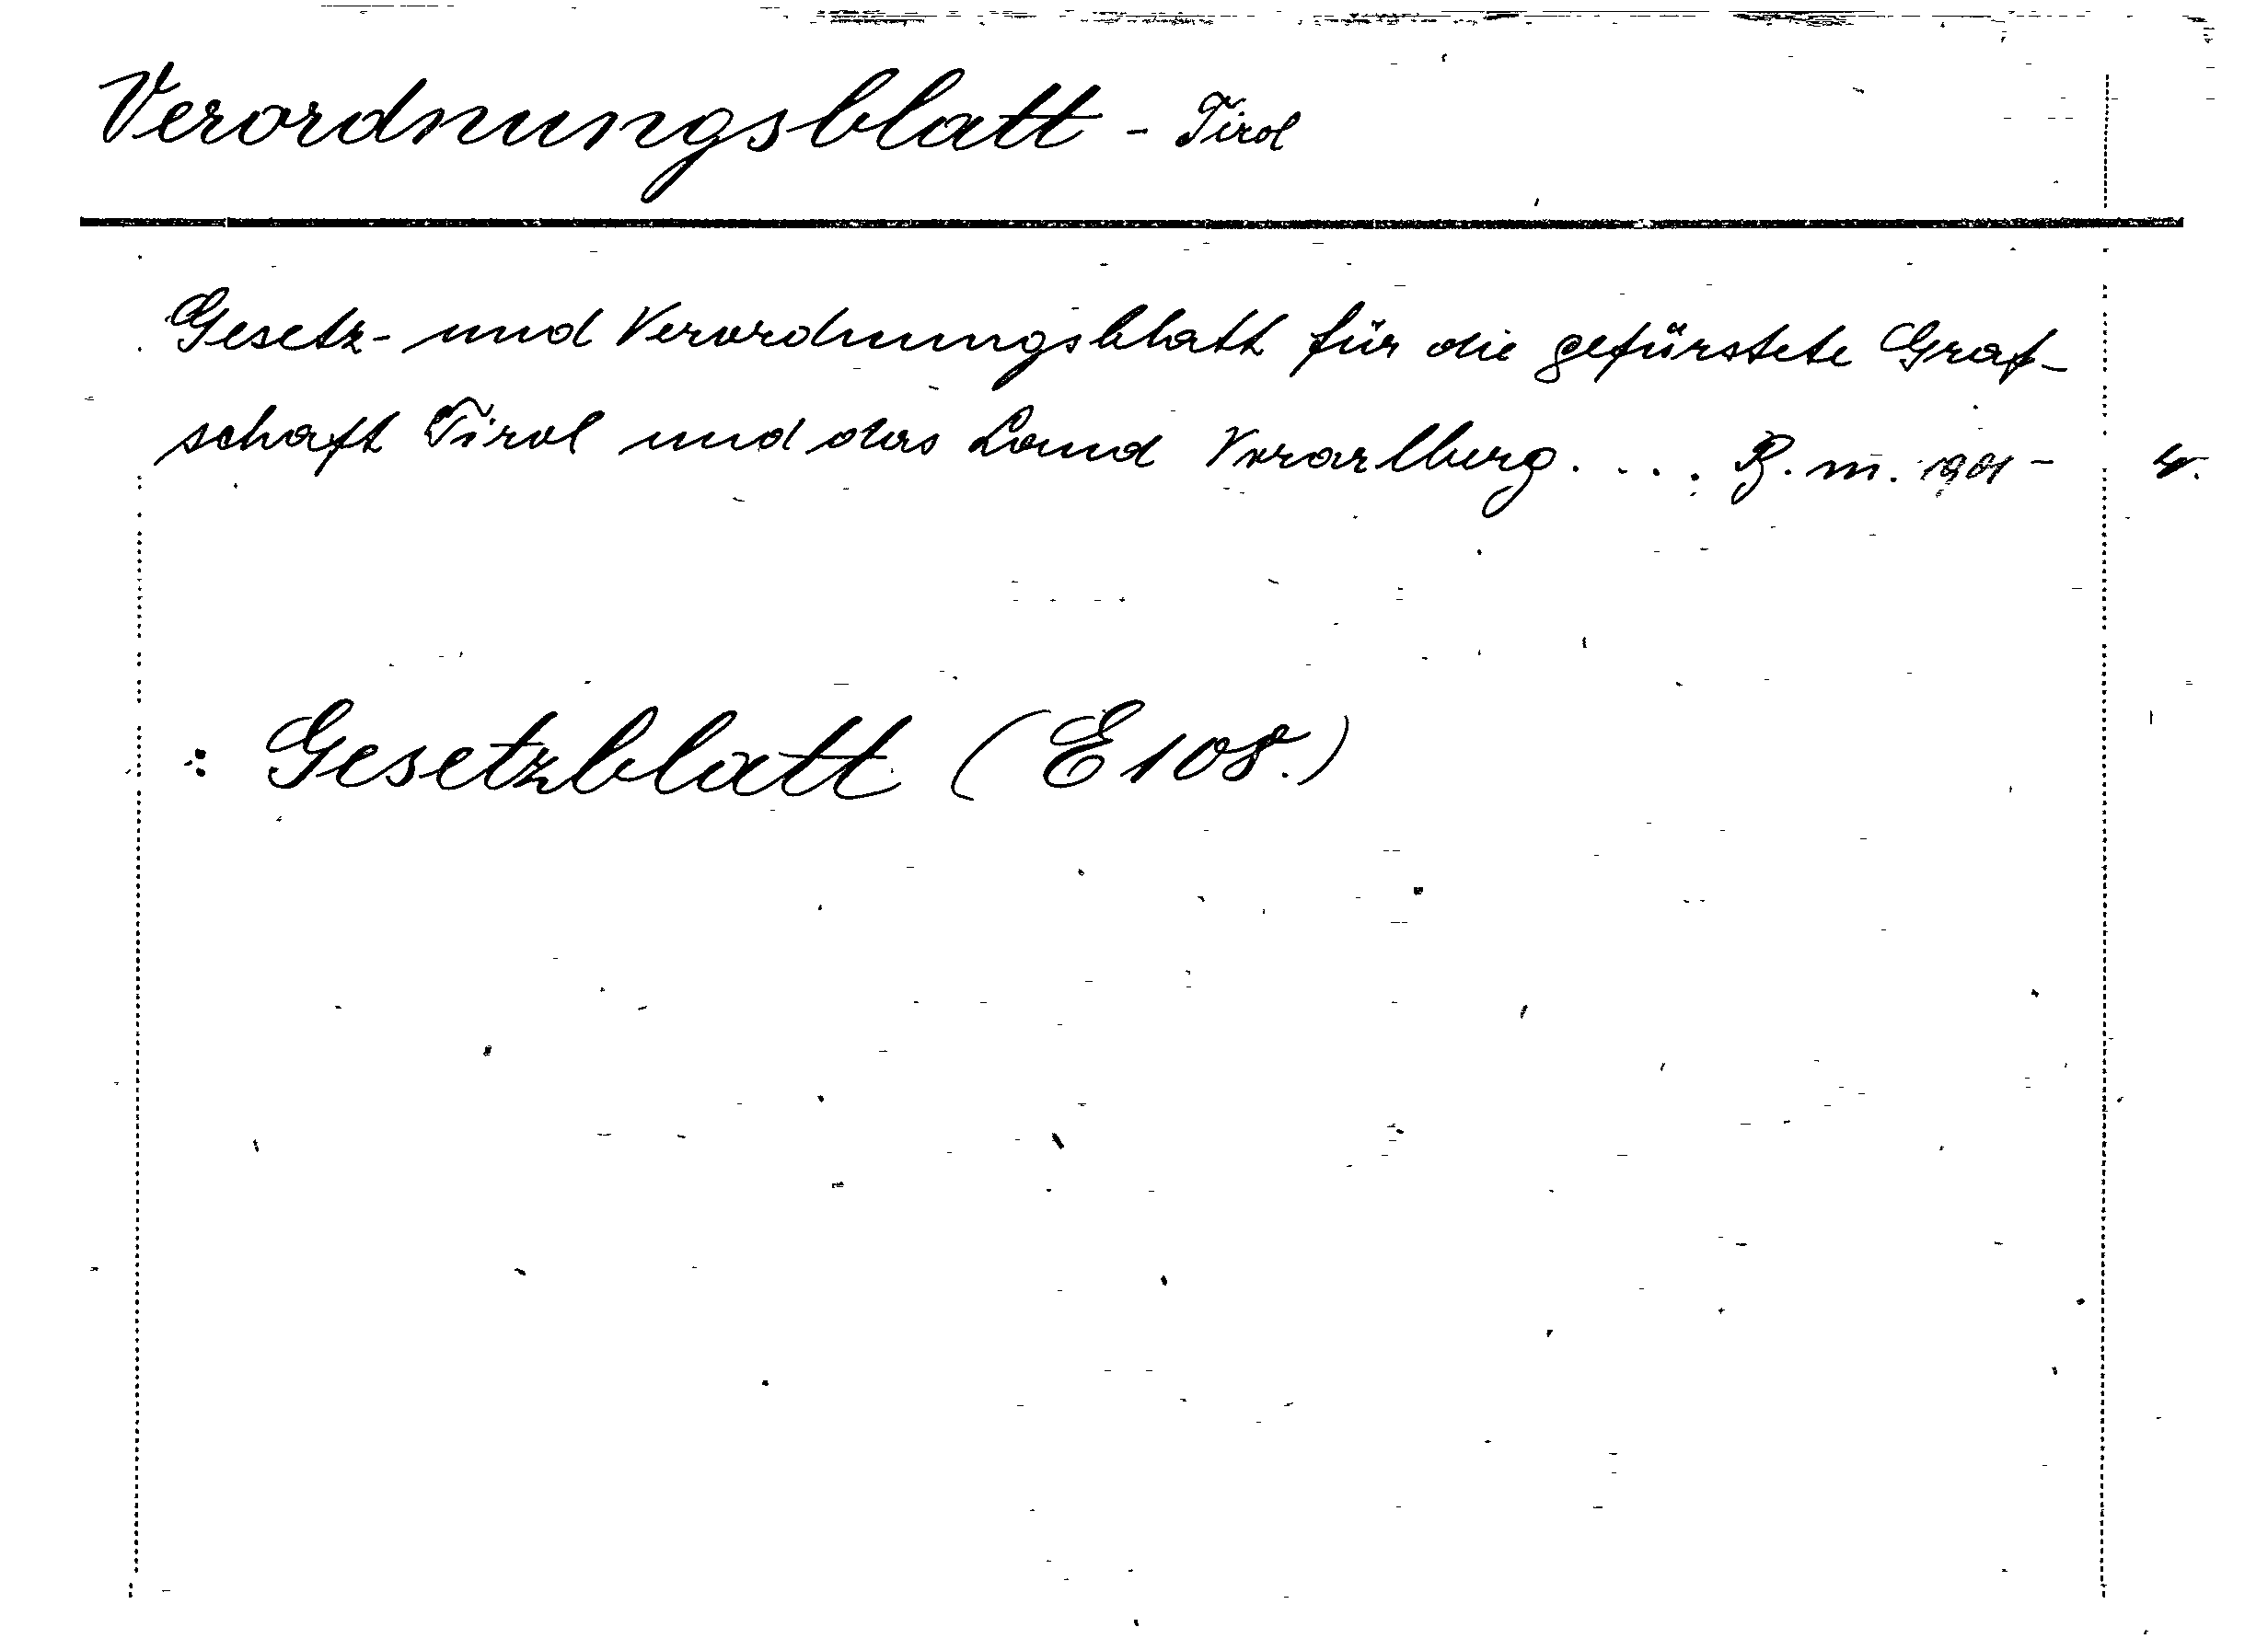 Verordnungsblatt - Tirol
Gesetz- und Verordnungsblatt für die gefürstete Graf-
schaft Tirol und das Land Vorarlberg. . . . B. m. 1901 - 4.
: Gesetzblatt (E 108.)